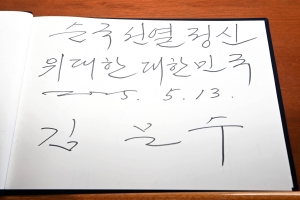 순국선열 정신
위대한 대한민국
2025. 5. 13.
김 문 수